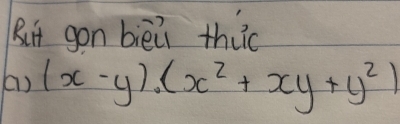 Rút gọn biểu thức
a) (x - y).(x² + xy + y²)